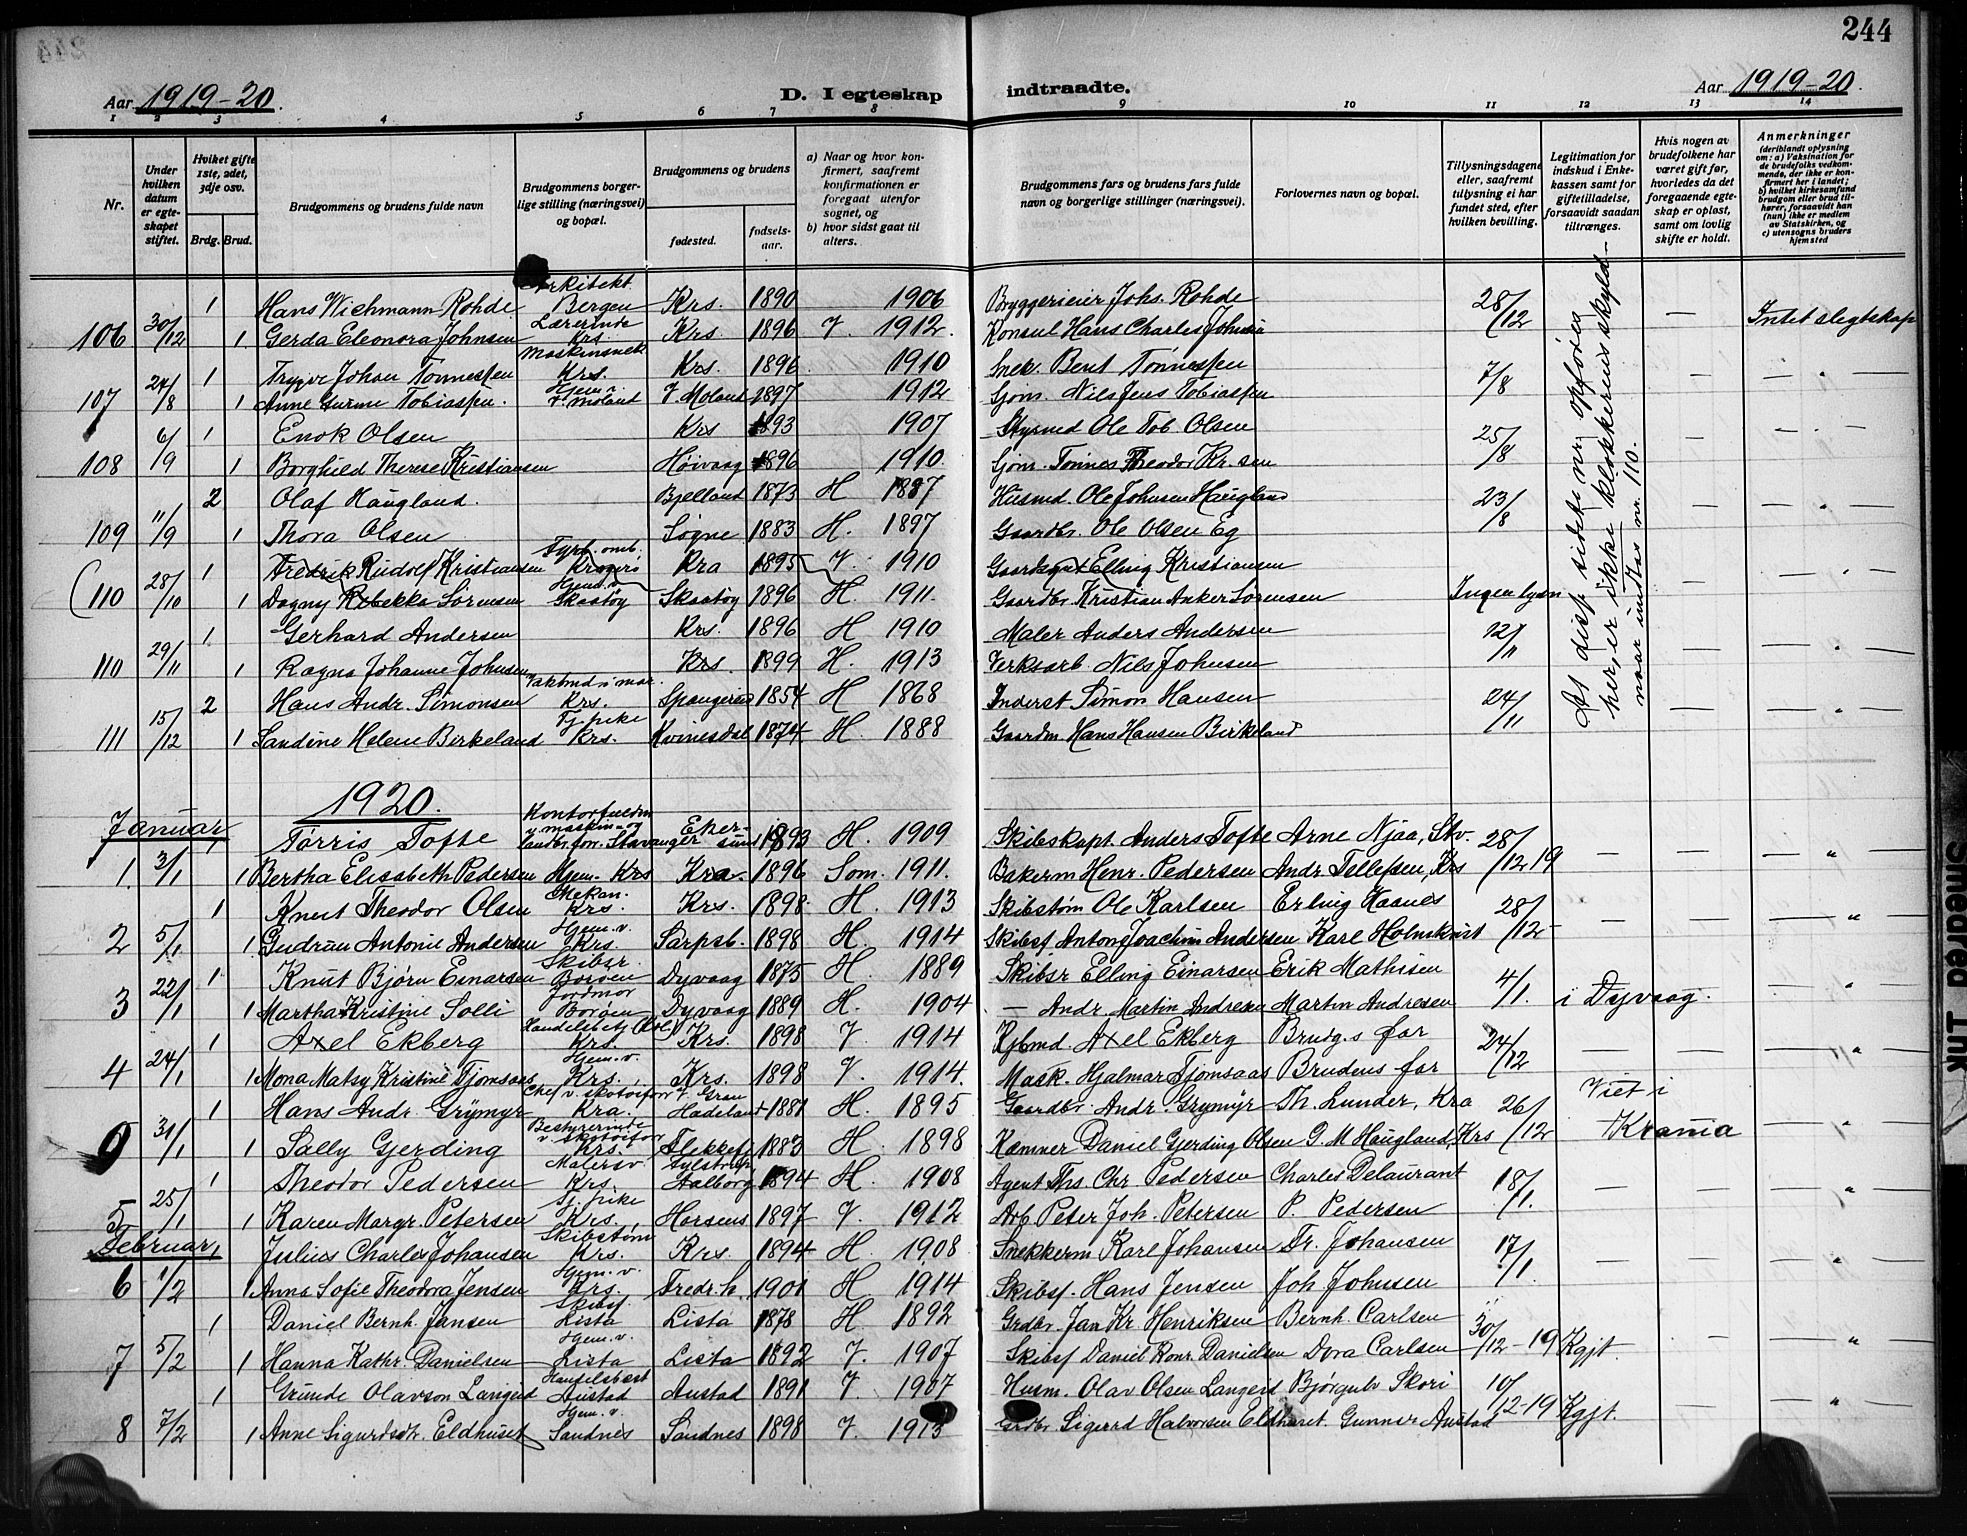 244
Aar 1919-20.
D. I egteskap indtraadte.
Aar 1919-20.
1 2 3 4 5 6 7 8 9 10 11 12 13 14
Nr.
Under hvilken datum er egteskapet stiftet.
Hviket gifte 1ste, 2det, 3dje osv.
Brdg. Brud.
Brudgommens og brudens fulde navn
Brudgommens borgerlige stilling (næringsvei) og bopæl.
Brudgommens og brudens
fødested.
fødselsaar.
a) Naar og hvor konfirmert, saafremt konfirmationen er foregaat utenfor sognet, og
b) hvor sidst gaat til alters.
Brudgommens fars og brudens fars fulde navn og borgerlige stillinger (næringsvei).
Forlovernes navn og bopæl.
Tillysningsdagene eller, saafremt tillysning ei har fundet sted, efter hvilken bevilling.
Legitimation for indskud i Enkekassen samt for giftetilladelse, forsaavidt saadan tiltrænges.
Hvis nogen av brudefolkene har været gift før, hvorledes da det foregaaende egteskap er opløst, samt om lovlig skifte er holdt.
Anmerkninger
(deriblandt oplysning om: a) Vaksination for de brudefolks vedkommende, der ikke er konfirmert her i landet; b) hvilket kirkesamfund brudgom eller brud tilhører, forsaavidt han (hun) ikke er medlem av Statskirken, og c) utensogns bruders hjemsted
1 Hans Wichmann Rohde Arkitekt Bergen Krs. 1890 1906 Bryggerieier Johs. Rohde 28/12
106 30/12 1 Gerda Eleonora Johnsen Lærerinde Krs. Krs. 1896 V. 1912. Konsul Hans Charles Johnsen — Intet slegtskap
1 Trygve Johan Tønnessen Maskinsnek. Krs. Krs. 1896 1910 Snek. Bent Tønnessen 7/8
107 24/8 1 Anne Gurine Tobiassen. Hjem. v. V. Moland V. Moland 1897 1912 Sjøm. Nils Jens Tobiassen — — " —
1 Enok Olsen Krs 1893 1907 Styrmd Ole Tob. Olsen 25/8
108 6/9 1 Borghild Therese Kristiansen Høivaag 1896 1910. Sjøm. Tønnes Theodor Kr.sen — — " —
2 Olaf Haugland. Bjelland 1873 H 1887 Husmd. Ole Johnsen Haugland 23/8
109 11/9 1 Thora Olsen Søgne 1883 H. 1897 Gaardbr. Ole Olsen Eg — — " —
1 Fredrik Rudolf Kristiansen Fyrb. omb. Kragerø Kra 1895 V. 1910 Elling Kristiansen
(110 28/10 1 Dagny Rebekka Sørensen Hjem. v. Skaatøy Skaatøy 1896 H. 1911. Gaardbr. Kristian Anker Sørensen Ingen lysn — — " —
1 Gerhard Andersen Krs. 1896 H 1910 Maler Anders Andersen 12/11
110 29/11 1 Ragna Johanne Johnsen Krs. 1899 H. 1913 Verksarb. Nils Johnsen — — " —
2 Hans Andr. Simonsen Krs. Spangereid 1854 H 1868 Inderst Simon Hansen 24/11
111 15/12 1 Sandine Helene Birkeland Tj.pike Krs. Kvinesdal 1874 H. 1888 Gaardm Hans Hansen Birkeland — — " —
At disse sidste nr. opføres her, er ikke klokkerens skyld naar undtas nr. 110.
1920.
Januar
1 Tørris Tofte Kontorfuldm v. maskin- og landbr. forr. Stavanger Ekersund 1893 H. 1909 Skibskapt. Anders Tofte Arne Njaa, Stv. 28/12 19
1. 3/1 1 Bertha Elisabeth Pedersen Hjem. Krs Kra. 1896 Som. 1911. Bakerm Henr. Pedersen Andr. Tellefsen, Krs — — "
1 Knut Theodor Olsen Mekan. Krs. Krs. 1898 H. 1913 Skibstøm Ole Karlsen Erling Haanes 28/12
2 5/1 1 Gudrun Antonie Andersen Hjem. v. Krs. Sarpsb. 1898 H. 1914 Skibsf Anton Joachim Andersen Karl Holmkvist — — "
1 Knut Bjørn Einarsen Skibsr. Borøen Dyvaag 1875 H. 1889 Skibsr Elling Einarsen Erik Mathisen 4/1.
3 22/1 1 Martha Kristine Solli Jordmor Borøen Dyvaag 1889 H. 1904 — Andr. Martin Andresen Martin Andresen i Dyvaag. — "
1 Axel Ekberg Krs. Krs. 1898 V. 1914 Kjbmd. Axel Ekberg Brudg.s far 24/12
4 24/1 1 Mona Matsy Kristine Tjomsaas Hjem. v. Krs. Krs. 1898 V. 1914. Mask. Hjalmar Tjomsaas Brudens far — — "
1 Hans Andr. Grymyr Chef v. skotøiforr. Kra. Gran Hadeland 1881 H. 1895 Gaardbr. Andr. Grymyr Th. Lunder, Kra 26/12
31/1 1 Sally Gjerding Bestyrerinde v. skotøiforr Krs. Flekkefj 1883 H 1898 Kæmner Daniel Gjerding Olsen G. M Haugland, Krs Viet i Krania — "
1 Theodor Pedersen Malersv. Krs. Aalborg 1894 H. 1908 Agent Ths Chr. Pedersen Charles Delaurant 18/1.
5 25/1 1 Karen Margr. Petersen Tj.pike Krs. Horsens 1897 V. 1912 Arb Peter Joh. Petersen P. Pedersen — — "
Februar.
Julius Charles Johansen Skibstøm. Krs. Krs. 1894 H. 1908 Snekkerm Karl Johansen Fr. Johansen 17/1.
6 1/2 1 Anna Sofie Theodora Jensen Hjem. v. Krs. Fredr.h. 1901 H. 1914 Skibsf. Hans Jensen Joh Johnsen — — "
1 Daniel Bernh. Jansen Skibsf. Lista Lista 1878 H. 1892 Grdbr. Jan Kr. Henriksen Bernh. Carlsen 30/12-19
7 5/2 1 Hanna Kathr. Danielsen Hjem. v. Lista Lista 1892 V. 1907 Skibsf Daniel Konr. Danielsen Dora Carlsen Kgjt. — "
1 Grunde Olavson Langeid Handelsbest Austad Austad 1891 V. 1907 Husm. Olav Olsen Langeid Bjørgulv Skori 10/12-19
8 7/2 1 Anne Sigurdsdtr. Eldhuset Hjem. v. Sandnes Sandnes 1898 V. 1913 Grdbr Sigurd Halvorsen Eldhuset. Gunnar Austad Kgjt. — "
Smeared Ink